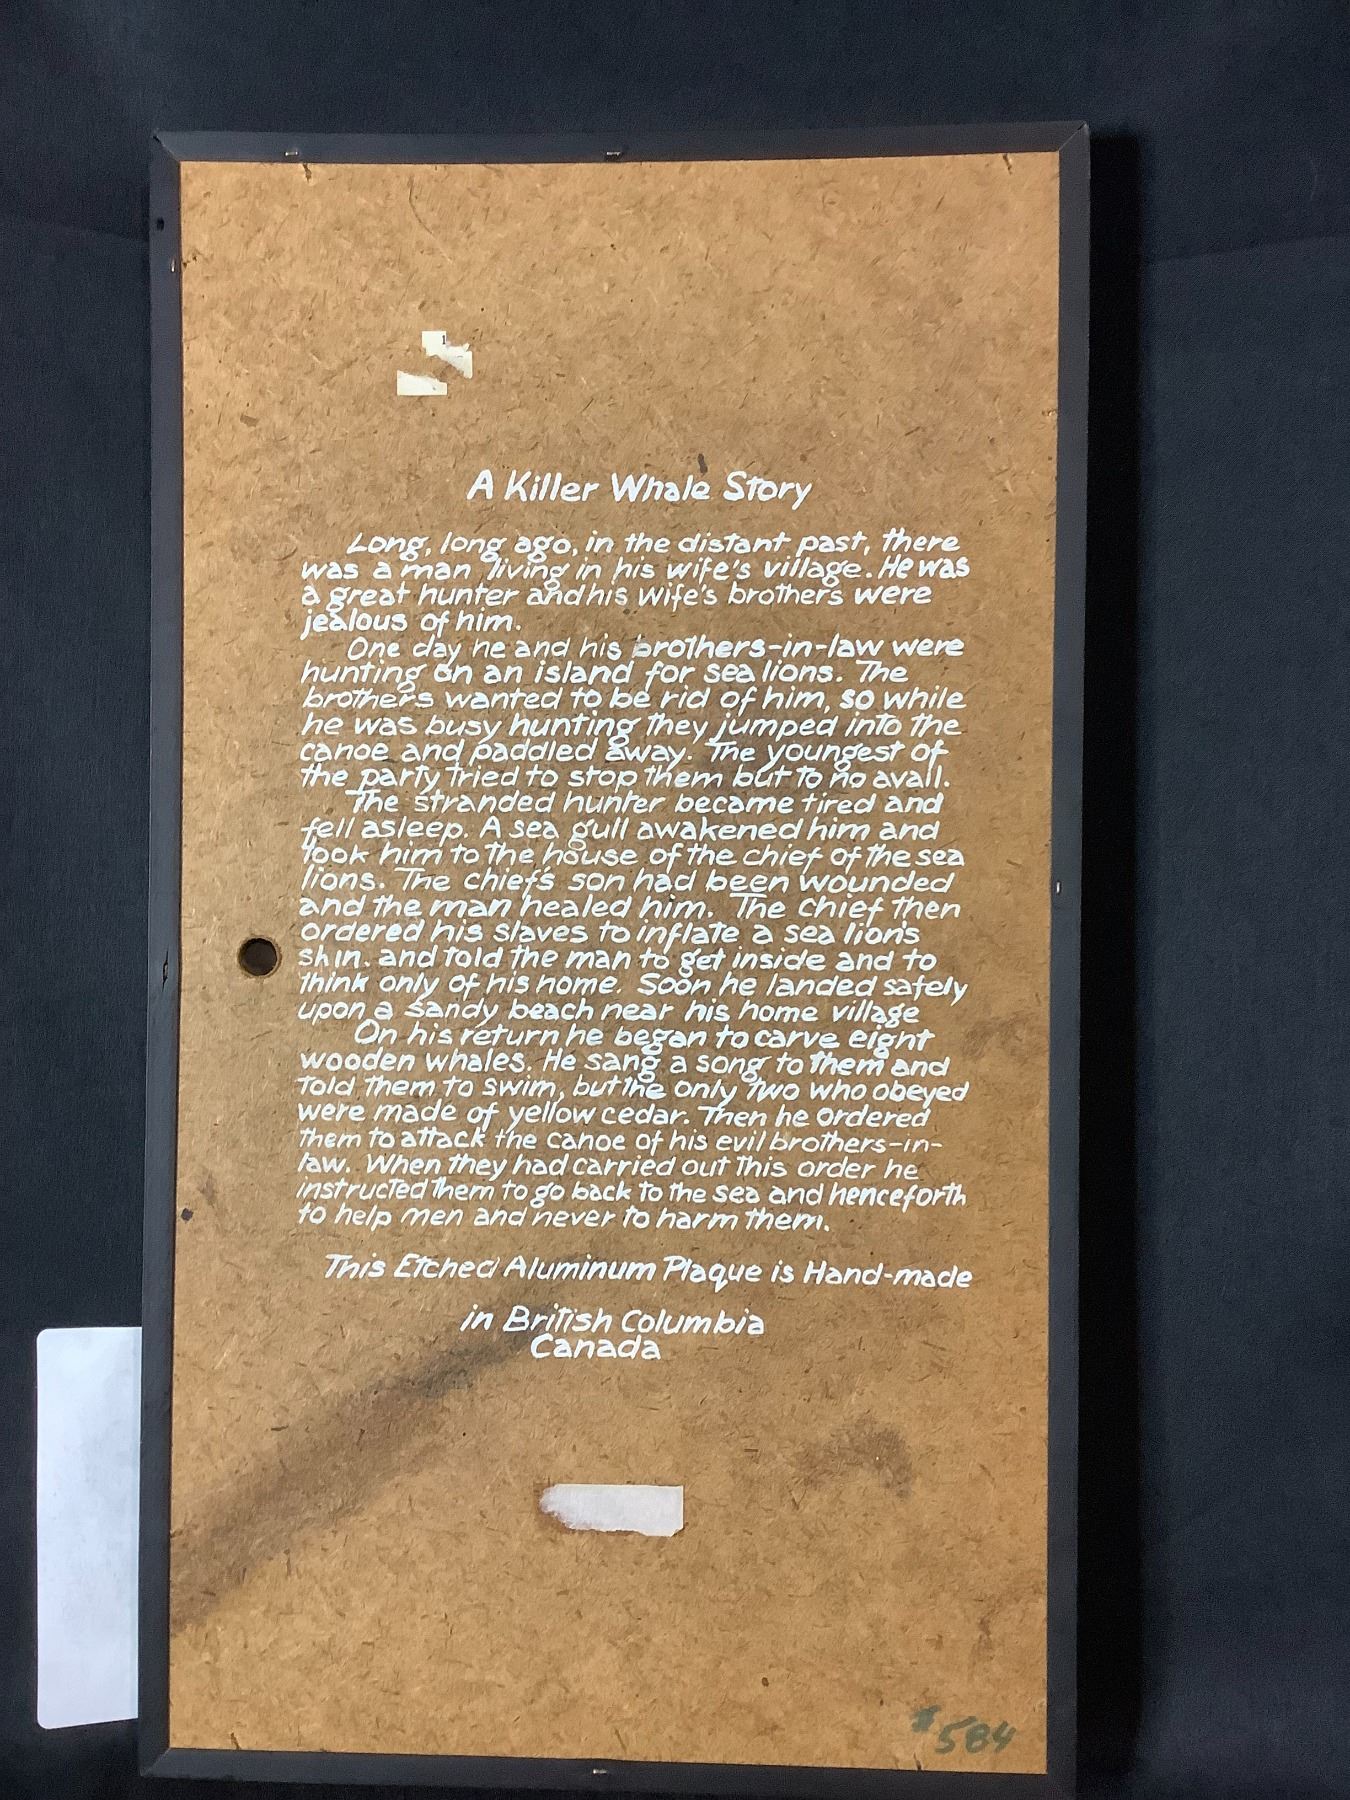 1
A Killer Whale Story
Long, long ago, in the distant past, there
was a man living in his wife's village. He was
a great hunter and his wife's brothers were
jealous of him.
One day he and his brothers-in-law were
hunting on an island for sea lions. The
brothers wanted to be rid of him, so while
he was busy hunting they jumped into the
canoe and paddled away. The youngest of
the party tried to stop them but to no avail.
The stranded hunter became tired and
fell asleep. A sea gull awakened him and
took him to the house of the chief of the sea
lions. The chief's son had been wounded
and the man healed him. The chief then
ordered his slaves to inflate a sea lion's
skin. and told the man to get inside and to
think only of his home. Soon he landed safely
upon a sandy beach near his home village
On his return he began to carve eight
wooden whales. He sang a song to them and
told them to swim, but the only two who obeyed
were made of yellow cedar. Then he ordered
them to attack the canoe of his evil brothers-in-
law. When they had carried out this order he
instructed them to go back to the sea and henceforth
to help men and never to harm them.
This Etched Aluminum Plaque is Hand-made
in British Columbia
Canada
#584